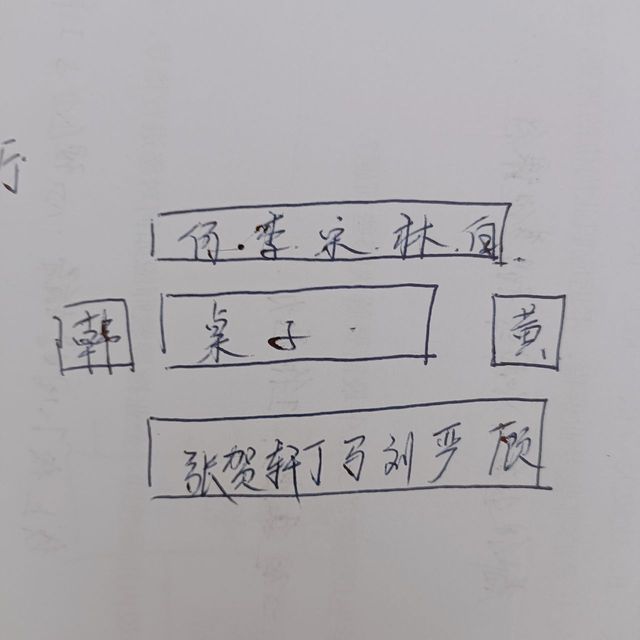 厅
何.李.宋.林.白.
韩
桌子
黄
张贺轩丁马刘严顾